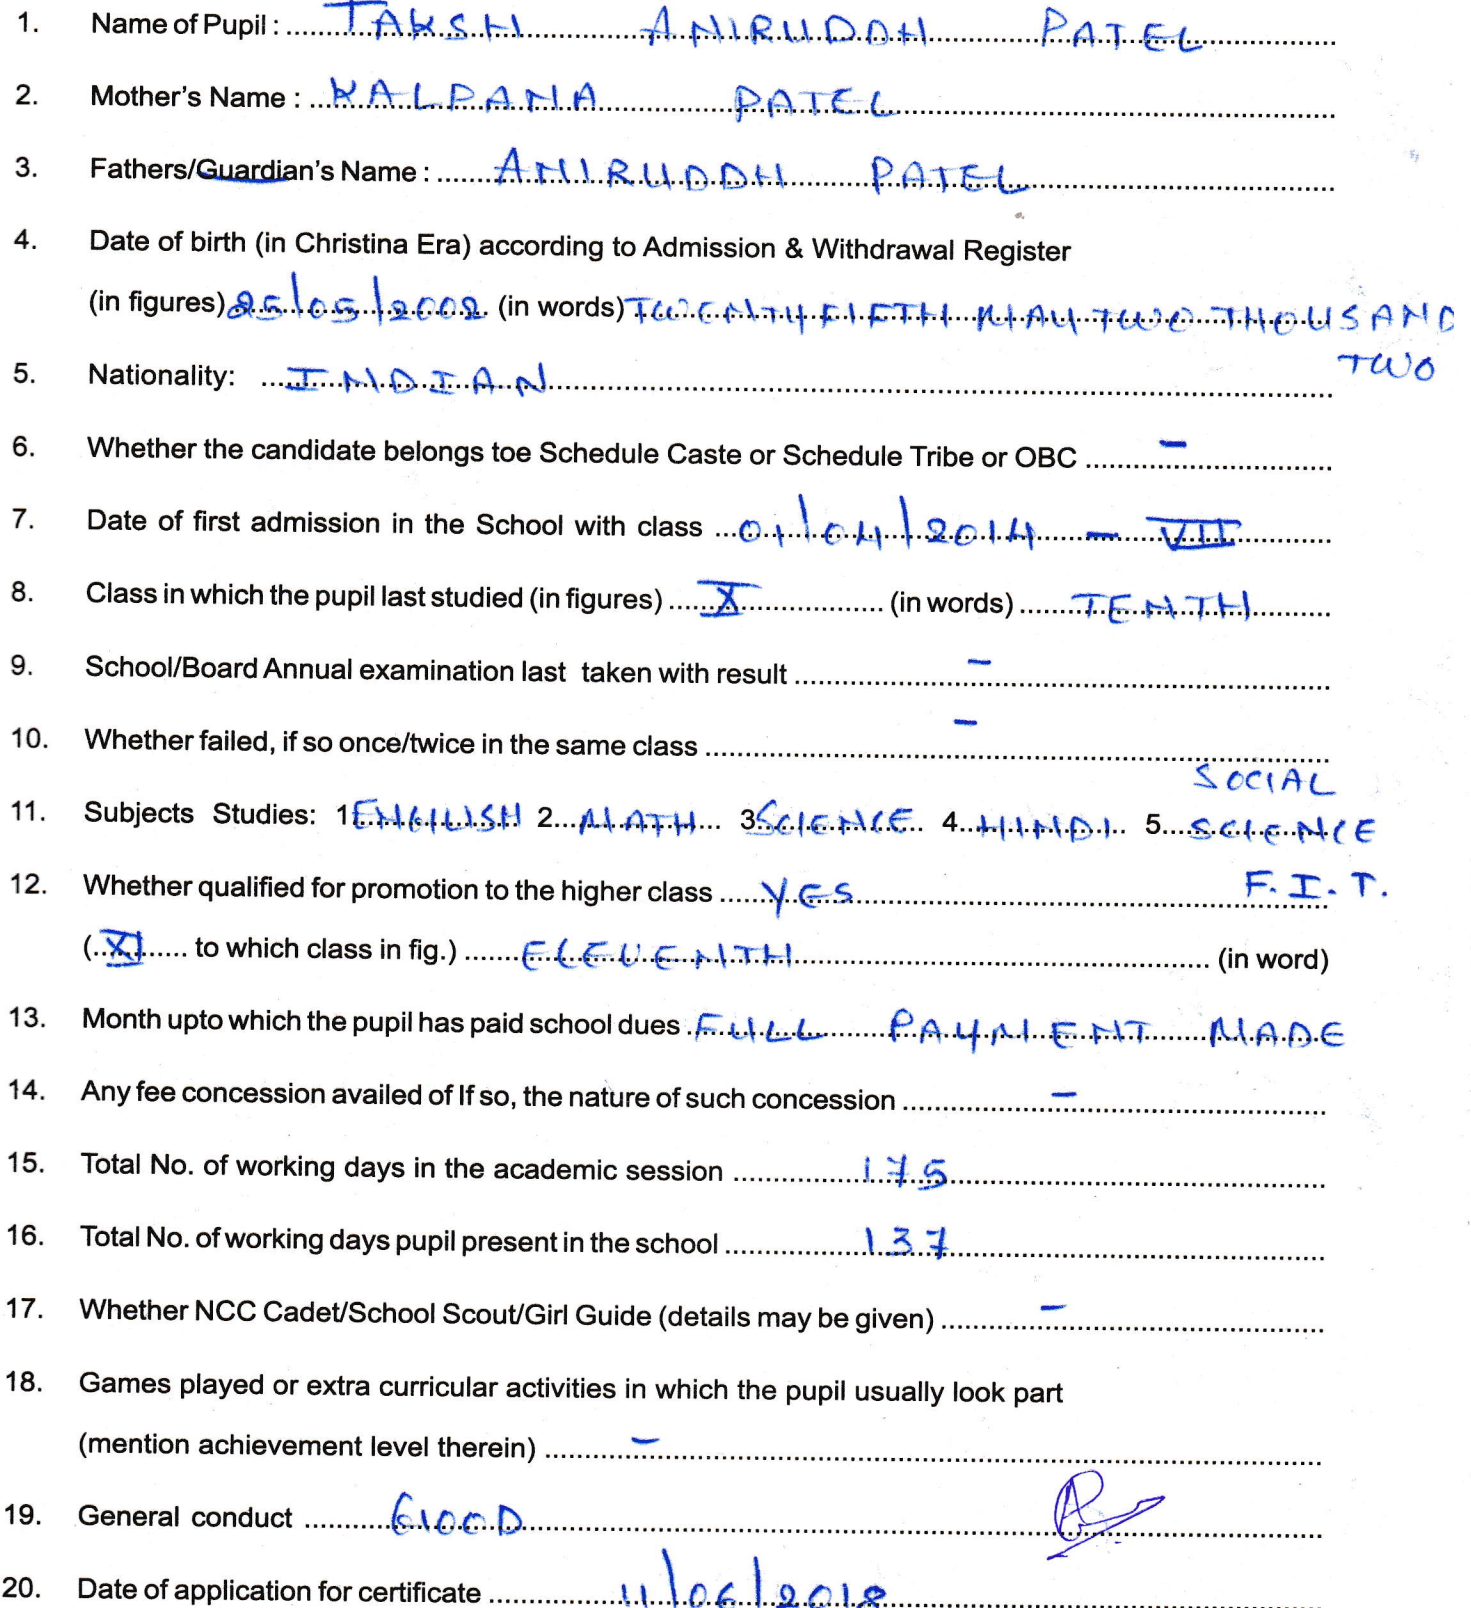 1. Name of Pupil : TAKSH ANIRUDDH PATEL
2. Mother's Name : KALPANA PATEL
3. Fathers/Guardian's Name : ANIRUDDH PATEL
4. Date of birth (in Christina Era) according to Admission & Withdrawal Register
(in figures) 25/05/2002 (in words) TWENTY FIFTH MAY TWO THOUSAND
TWO
5. Nationality: INDIAN
6. Whether the candidate belongs toe Schedule Caste or Schedule Tribe or OBC –
7. Date of first admission in the School with class 01/04/2014 – VII
8. Class in which the pupil last studied (in figures) X (in words) TENTH
9. School/Board Annual examination last taken with result –
10. Whether failed, if so once/twice in the same class –
SOCIAL
11. Subjects Studies: 1 ENGLISH 2 MATH 3 SCIENCE 4 HINDI 5 SCIENCE
F.I.T.
12. Whether qualified for promotion to the higher class YES
(XI to which class in fig.) ELEVENTH (in word)
13. Month upto which the pupil has paid school dues FULL PAYMENT MADE
14. Any fee concession availed of If so, the nature of such concession –
15. Total No. of working days in the academic session 175
16. Total No. of working days pupil present in the school 137
17. Whether NCC Cadet/School Scout/Girl Guide (details may be given) –
18. Games played or extra curricular activities in which the pupil usually look part
(mention achievement level therein) –
19. General conduct GOOD
20. Date of application for certificate 11/06/2018